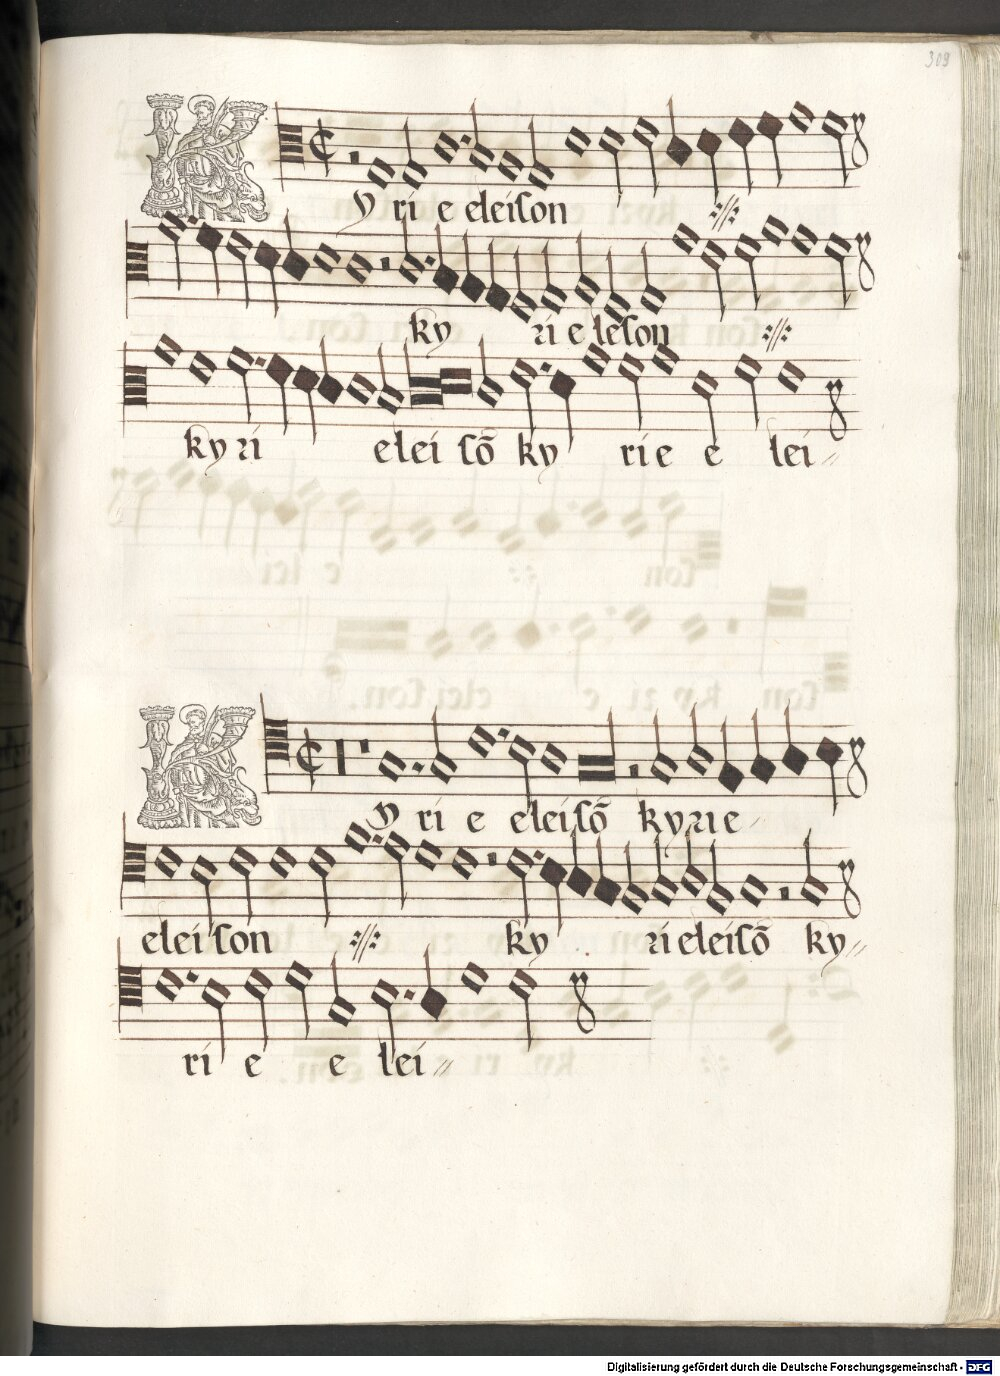 309
Kyrie eleison ://:
ky ri e leson ://:
ky ri elei sō ky ri e e lei
Kyri e eleisō kyrie
eleison ://: ky ri eleisō ky
ri e e lei
Digitalisierung gefördert durch die Deutsche Forschungsgemeinschaft - DFG